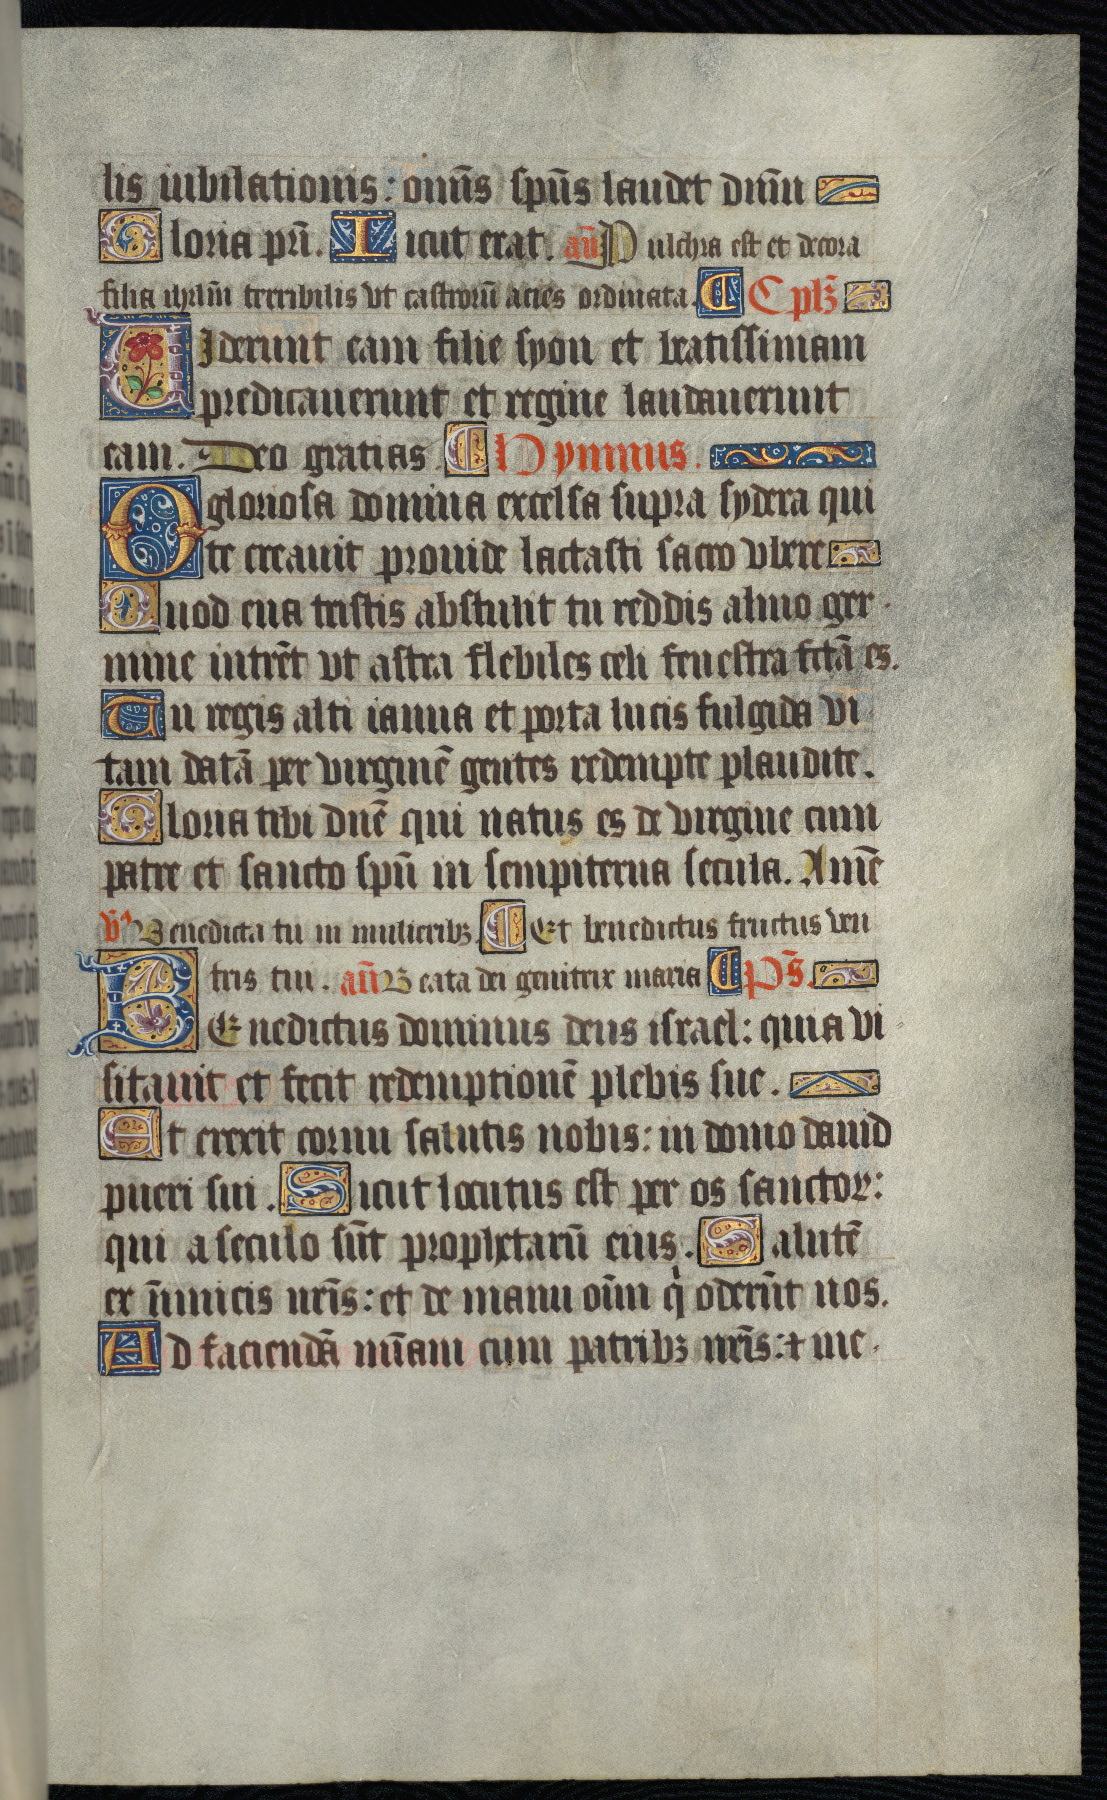 lis iubilationis: om̄s sp̄us laudet dn̄m
Gloria pr̄i. Sicut erat. an̄ Pulchra est et decora
filia ihrl̄m terribilis vt castrorū acies ordinata. Capl̄ꝫ
Uiderunt eam filie syon et beatissimam
predicauerunt et regine laudauerunt
eam. Deo gratias. Hymnus.
O gloriosa domina excelsa supra sydera qui
te creauit prouide lactasti sacro vbere
Quod eua tristis abstulit tu reddis almo ger
mine intrēt vt astra flebiles celi fenestra fctā es.
Tu regis alti ianua et porta lucis fulgida vi
tam datā per virginē gentes redempte plaudite.
Gloria tibi dn̄e qui natus es de virgine cum
patre et sancto sp̄u in sempiterna secula. Amē
v̄s Benedicta tu in mulieribꝫ. Et benedictus fructus ven
tris tui. an̄ Beata dei genitrix maria P̄s.
BEnedictus dominus deus israel: quia vi
sitauit et fecit redemptionē plebis sue.
Et erexit cornu salutis nobis: in domo dauid
pueri sui. Sicut locutus est per os sanctoꝝ:
qui a seculo sūt prophetarū eius. Salutē
ex īnimicis nr̄is: et de manu oīm q̇ oderūt nos.
Ad faciendā mīam cum patribꝫ nr̄is: ⁊ me